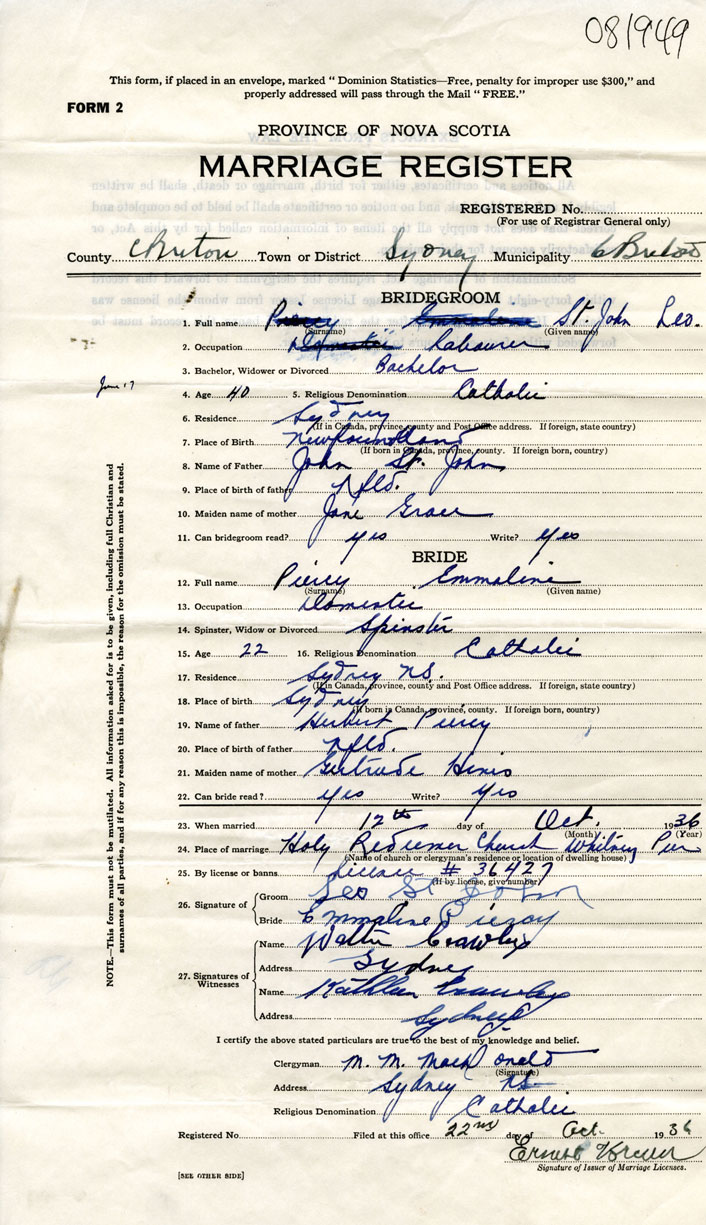 081949
This form, if placed in an envelope, marked “ Dominion Statistics—Free, penalty for improper use $300,” and
properly addressed will pass through the Mail “ FREE.”
FORM 2
PROVINCE OF NOVA SCOTIA
MARRIAGE REGISTER
REGISTERED No.
(For use of Registrar General only)
County C Breton Town or District Sydney Municipality C Breton
BRIDEGROOM
1. Full name Piercy Emmaline St. John Leo.
(Surname) (Given name)
2. Occupation Domestic Labourer
3. Bachelor, Widower or Divorced Bachelor
June 17
4. Age 40 5. Religious Denomination Catholic
6. Residence Sydney
(If in Canada, province, county and Post Office address. If foreign, state country)
7. Place of Birth Newfoundland
(If born in Canada, province, county. If foreign born, country)
8. Name of Father John St. John
9. Place of birth of father Nfld.
10. Maiden name of mother Jane Grace
11. Can bridegroom read? yes Write? yes
BRIDE
12. Full name Piercy Emmaline
(Surname) (Given name)
13. Occupation Domestic
14. Spinster, Widow or Divorced Spinster
15. Age 22 16. Religious Denomination Catholic
17. Residence Sydney N.S.
(If in Canada, province, county and Post Office address. If foreign, state country)
18. Place of birth Sydney
(If born in Canada, province, county. If foreign born, country)
19. Name of father Herbert Piercy
20. Place of birth of father Nfld.
21. Maiden name of mother Gertrude
22. Can bride read ? yes Write? yes
23. When married 12th day of Oct. 1936
(Month) (Year)
24. Place of marriage Holy Redeemer Church Whitney Pier
(Name of church or clergyman's residence or location of dwelling house)
25. By license or banns License # 36427
(If by license, give number)
26. Signature of
Groom Leo St John
Bride Emmaline Piercy
27. Signatures of Witnesses
Name Walter Crawley
Address Sydney
Name Kathleen Crawley
Address Sydney
I certify the above stated particulars are true to the best of my knowledge and belief.
Clergyman M. M. MacDonald
(Signature)
Address Sydney NS
Religious Denomination Catholic
Registered No. Filed at this office 22nd day of Oct. 1936
Ernest
Signature of Issuer of Marriage Licenses.
[SEE OTHER SIDE]
NOTE.—This form must not be mutilated. All information asked for is to be given, including full Christian and
surnames of all parties, and if for any reason this is impossible, the reason for the omission must be stated.